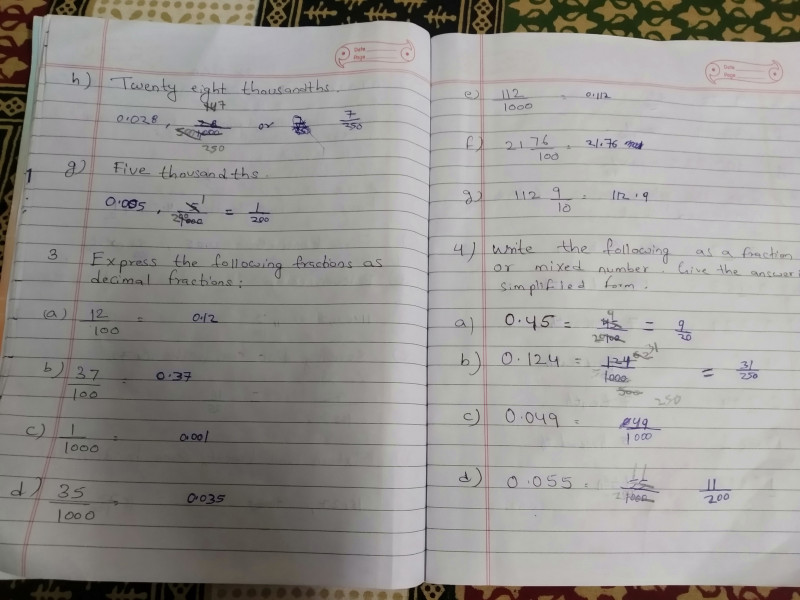 Date
Page
h) Twenty eight thousandths.
0.028, 28/1000 250 or 7/250
g) Five thousandths.
0.005, 5/1000 = 1/200
3 Express the following fractions as
decimal fractions:
(a) 12/100 = 0.12
b) 37/100 = 0.37
c) 1/1000 = 0.001
d) 35/1000 = 0.035
Date
Page
e) 112/1000 = 0.112
f) 21 76/100 = 21.76
g) 112 9/10 = 112.9
4) Write the following as a fraction
or mixed number. Give the answer
simplified form.
a) 0.45 = 45/100 = 9/20
b) 0.124 = 124/1000 = 31/250
c) 0.049 = 49/1000
d) 0.055 = 55/1000 11/200